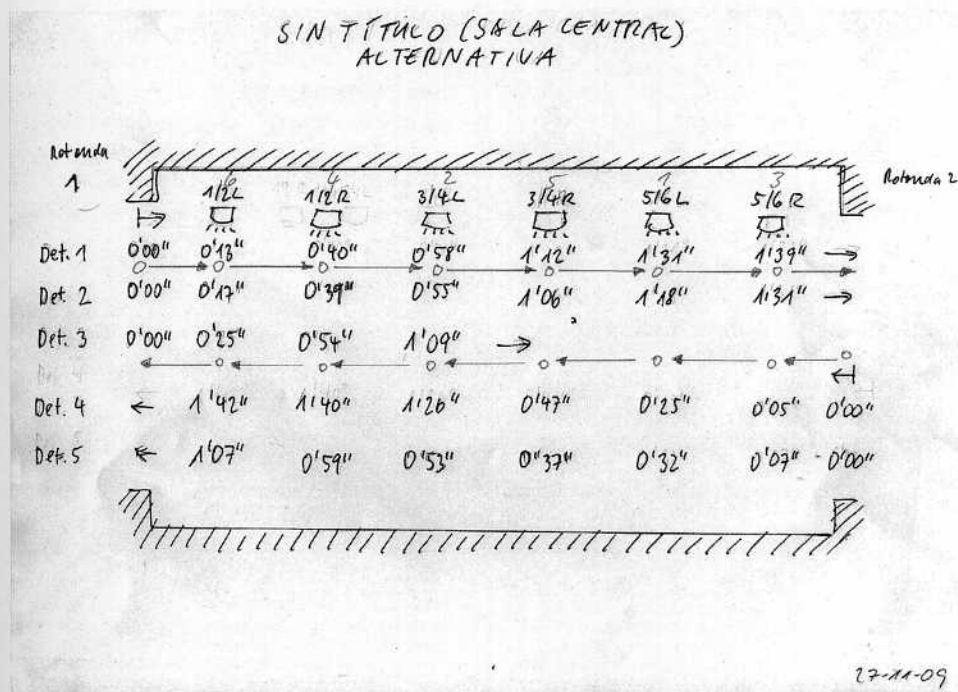 SIN TÍTULO (SALA CENTRAL)
ALTERNATIVA
Rotonda 1
Rotonda 2
6 4 2 5 1 3
1/2L 1/2R 3/4L 3/4R 5/6L 5/6R
Det. 1 0'00" 0'13" 0'40" 0'58" 1'12" 1'31" 1'39"
Det. 2 0'00" 0'17" 0'39" 0'55" 1'06" 1'18" 1'31"
Det. 3 0'00" 0'25" 0'54" 1'09"
Det. 4 1'42" 1'40" 1'26" 0'47" 0'25" 0'05" 0'00"
Det. 5 1'07" 0'59" 0'53" 0'37" 0'32" 0'07" 0'00"
27-11-09